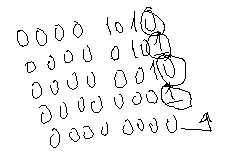 0000 1010
0000 0101
0000 0010
0000 0001
0000 0000